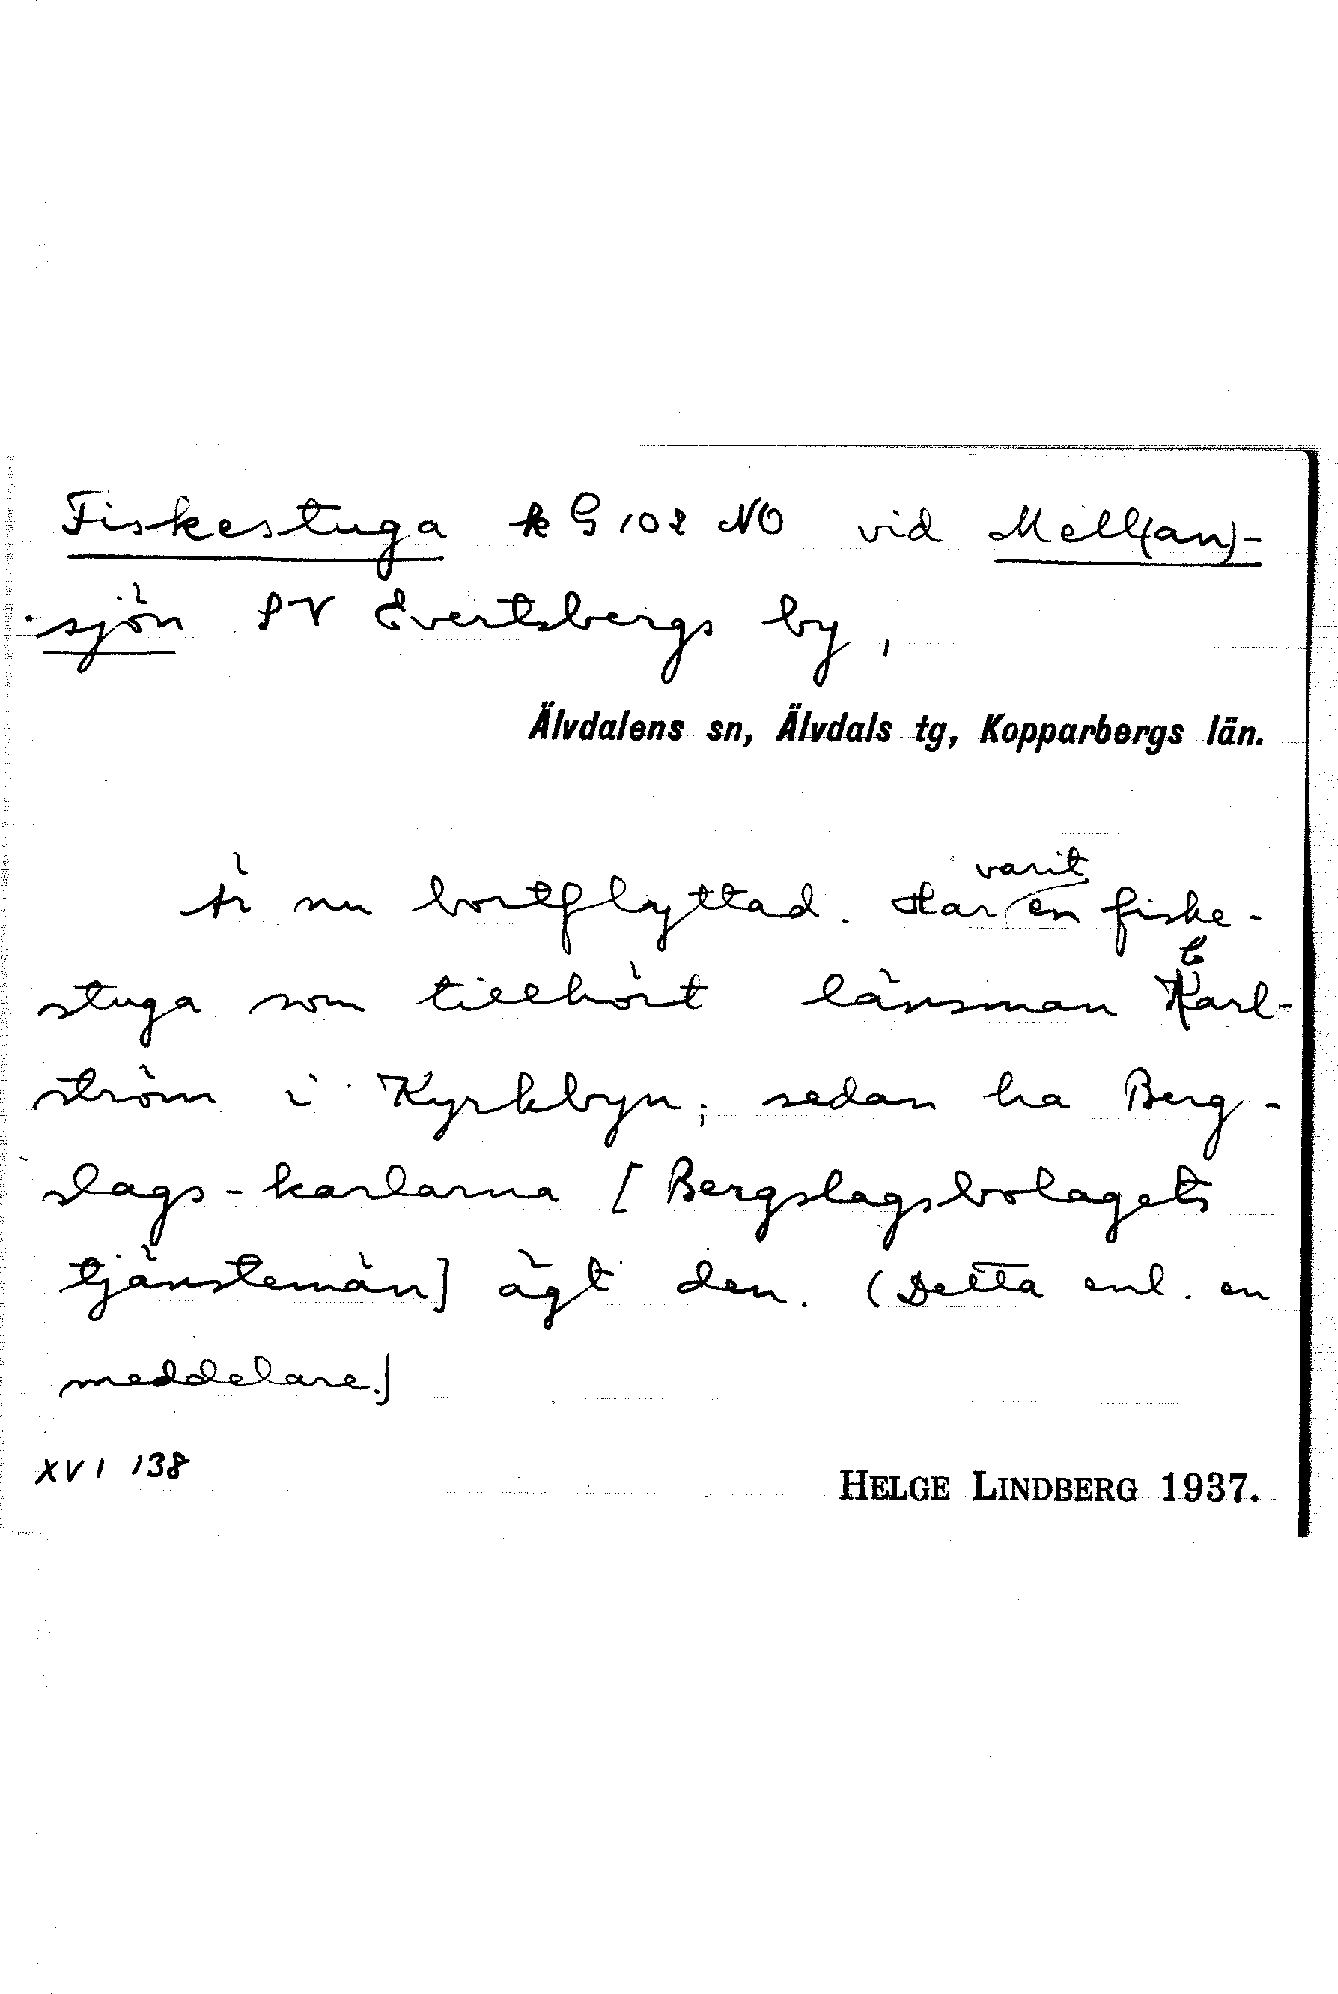 Fiskestuga k G 102 NO vid Mell(an)-
sjön SV Evertsbergs by,
Älvdalens sn, Älvdals tg, Kopparbergs län.
Är nu bortflyttad. Har varit en fiske-
stuga som tillhört länsman Carl-
ström i Kyrkbyn; sedan ha Berg-
slags-karlarna [Bergslagsbolagets
tjänstemän] ägt den. (Detta enl. en
meddelare.]
XVI 138
HELGE LINDBERG 1937.